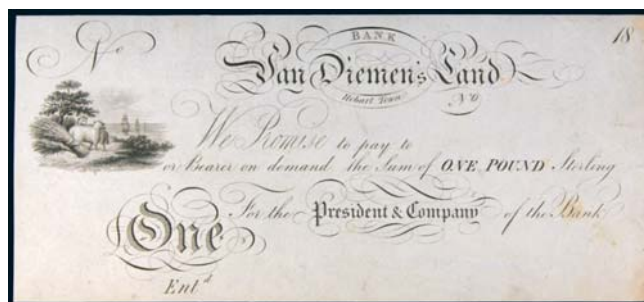 No
BANK
18
Van Diemen's Land
Hobart Town
No
We Promise to pay to
or Bearer on demand the Sum of ONE POUND Sterling
One For the President & Company of the Bank
Entd